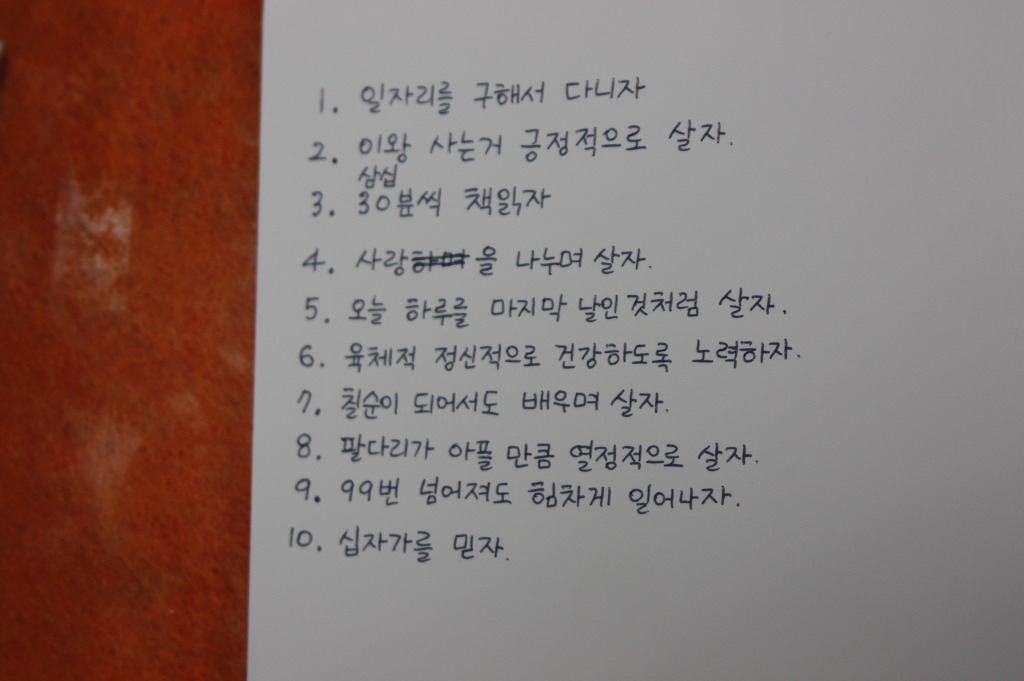 1. 일자리를 구해서 다니자
2. 이왕 사는거 긍정적으로 살자.
삼십
3. 30분씩 책읽자
4. 사랑하며을 나누며 살자.
5. 오늘 하루를 마지막 날인것처럼 살자.
6. 육체적 정신적으로 건강하도록 노력하자.
7. 칠순이 되어서도 배우며 살자.
8. 팔다리가 아플 만큼 열정적으로 살자.
9. 99번 넘어져도 힘차게 일어나자.
10. 십자가를 믿자.